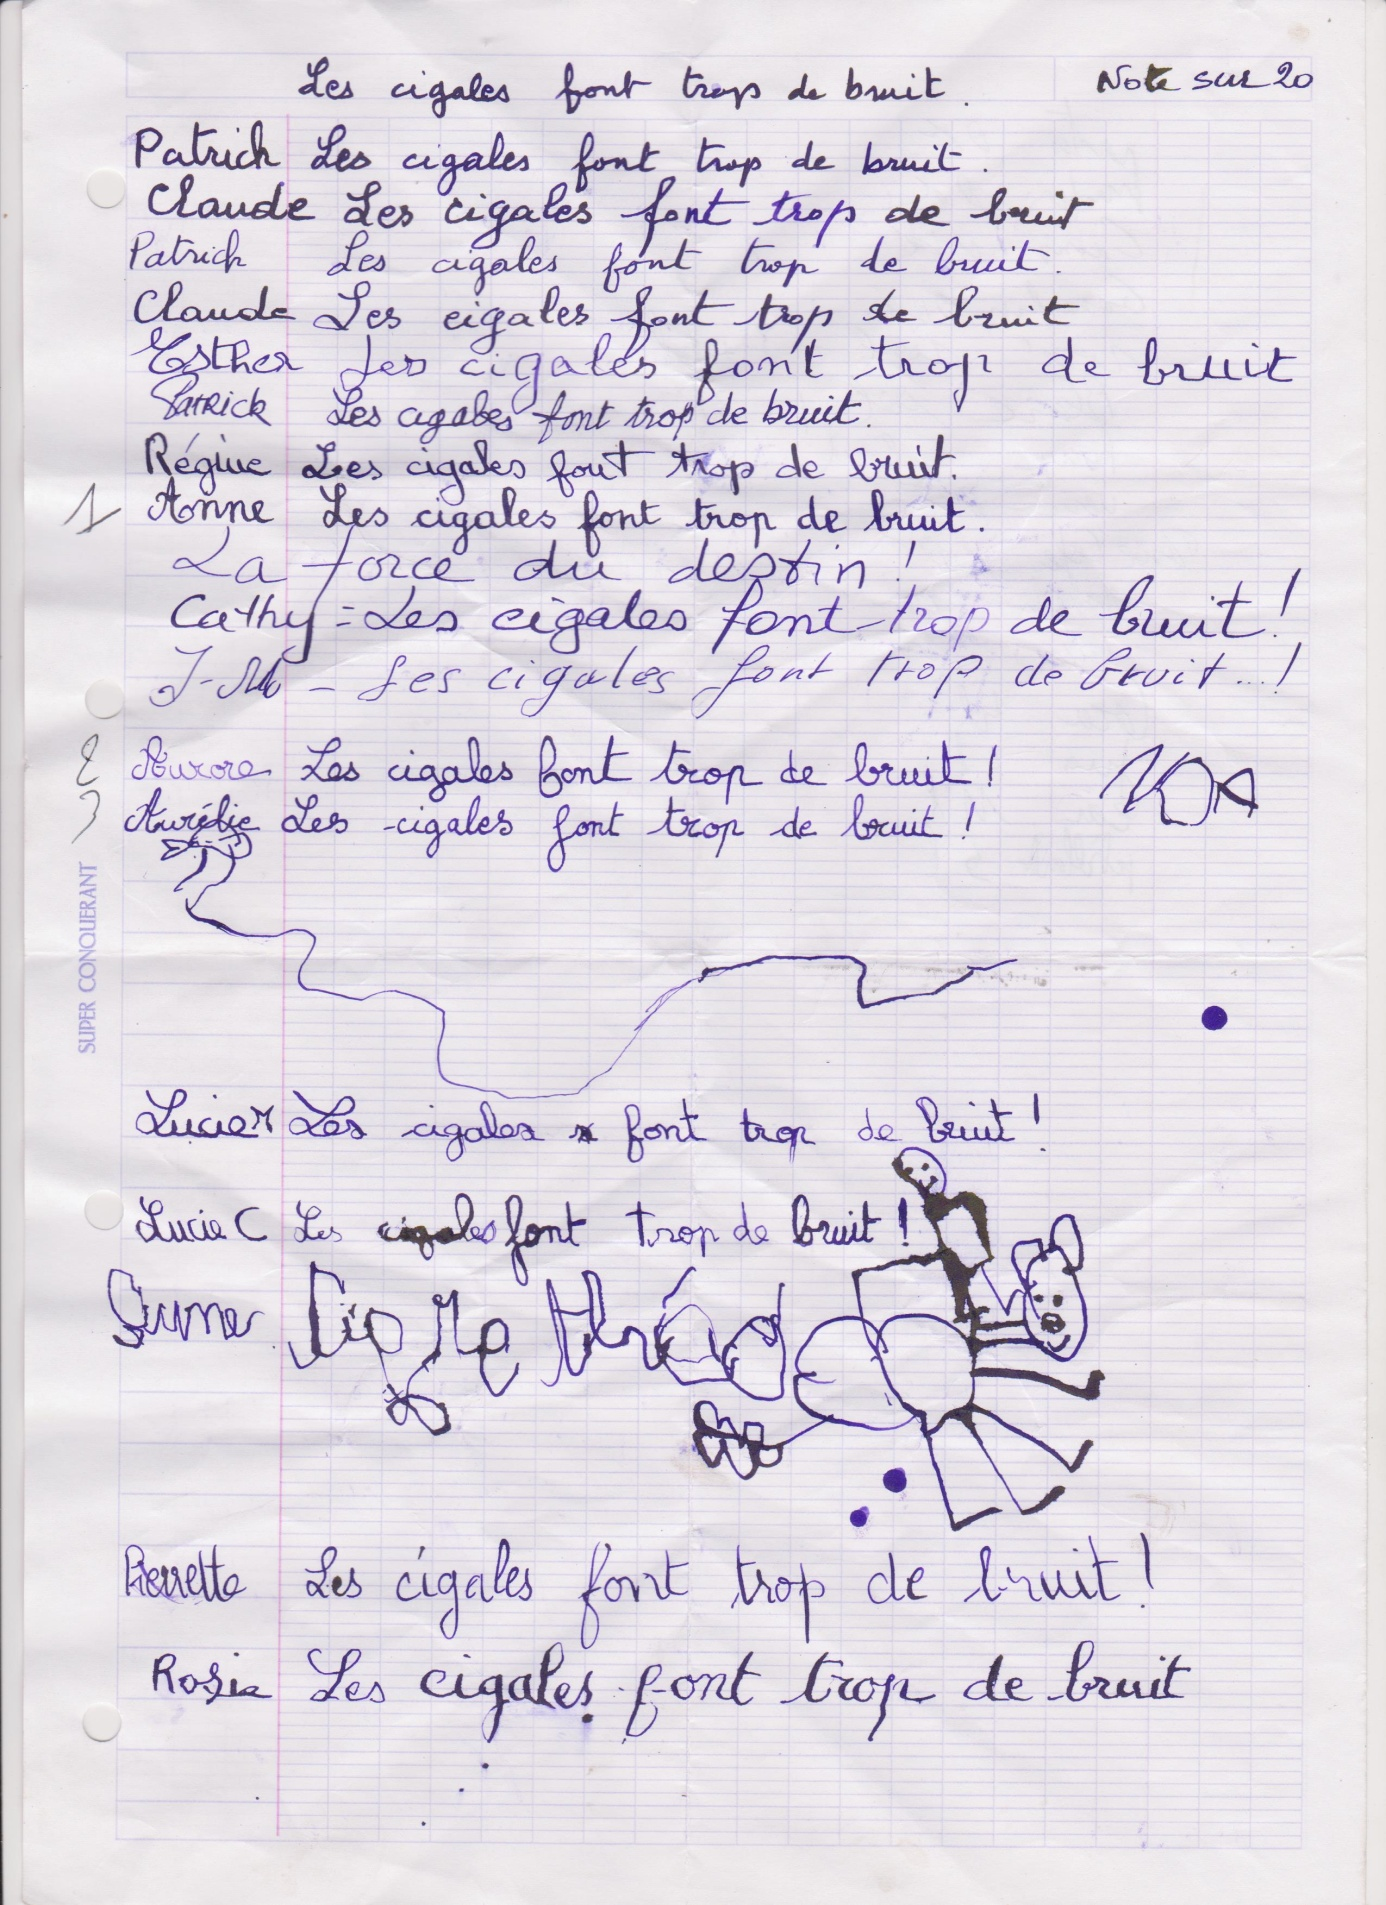 Les cigales font trop de bruit. Note sur 20
Patrick Les cigales font trop de bruit.
Claude Les cigales font trop de bruit
Patrick Les cigales font trop de bruit.
Claude Les cigales font trop de bruit
Esther Les cigales font trop de bruit
Patrick Les cigales font trop de bruit.
Régine Les cigales font trop de bruit.
1 Anne Les cigales font trop de bruit.
La force du destin !
Cathy = Les cigales font trop de bruit !
J-M - Les cigales font trop de bruit...!
2 Aurore Les cigales font trop de bruit !
Aurélie Les cigales font trop de bruit !
SUPER CONQUERANT
Lucie M Les cigales font trop de bruit !
Lucie C Les cigales font trop de bruit !
Pierrette Les cigales font trop de bruit !
Rosie Les cigales font trop de bruit